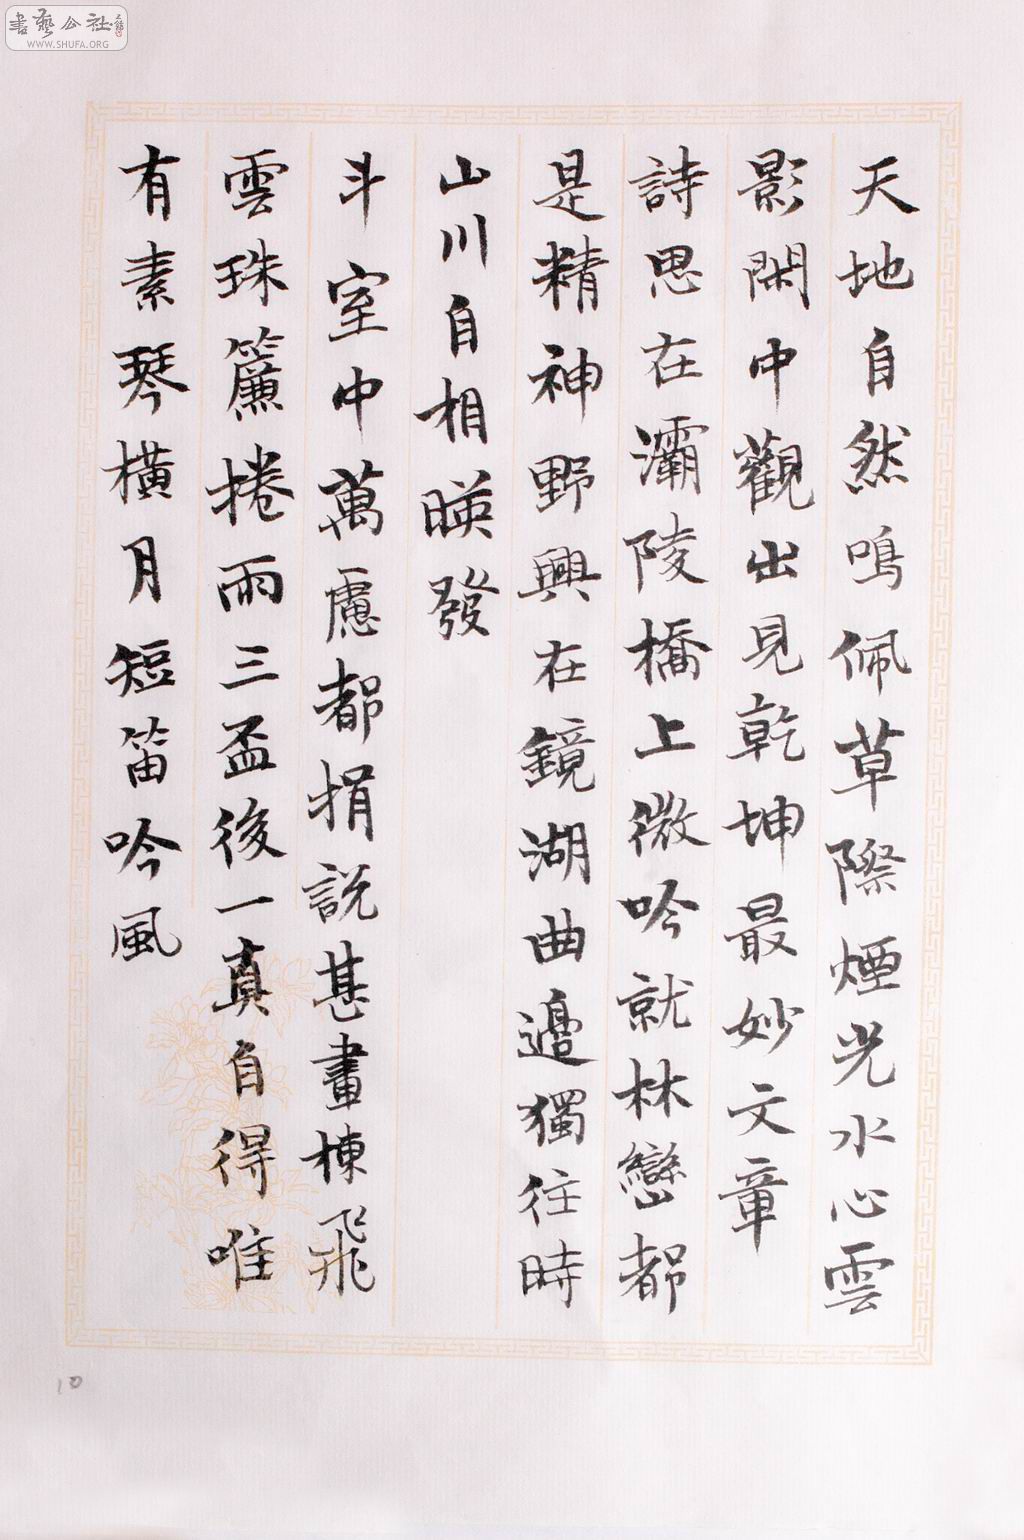 天地自然鳴佩草際煙光水心雲
影閑中觀出見乾坤最妙文章
詩思在灞陵橋上微吟就林巒都
是精神野興在鏡湖曲邊獨往時
山川自相暎發
斗室中萬慮都捐說甚畫棟飛
雲珠簾捲雨三盃後一真自得唯
有素琴橫月短笛吟風
10
書藝公社
WWW.SHUFA.ORG